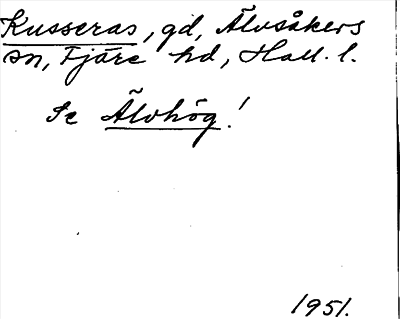 Kusseras, gd, Älvsåkers
sn, Fjäre hd, Hall. l.
Se Älvhög!
1951.